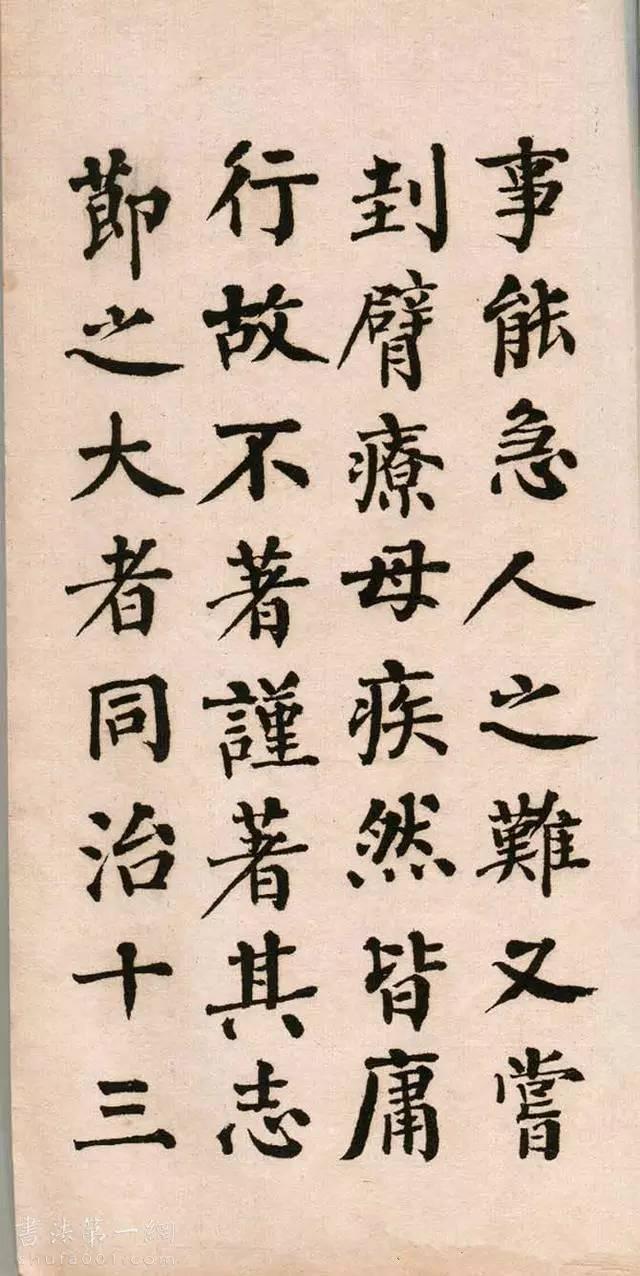 事能急人之難又嘗
刲臂療母疾然皆庸
行故不著謹著其志
節之大者同治十三
書法第一網
shufa001.com